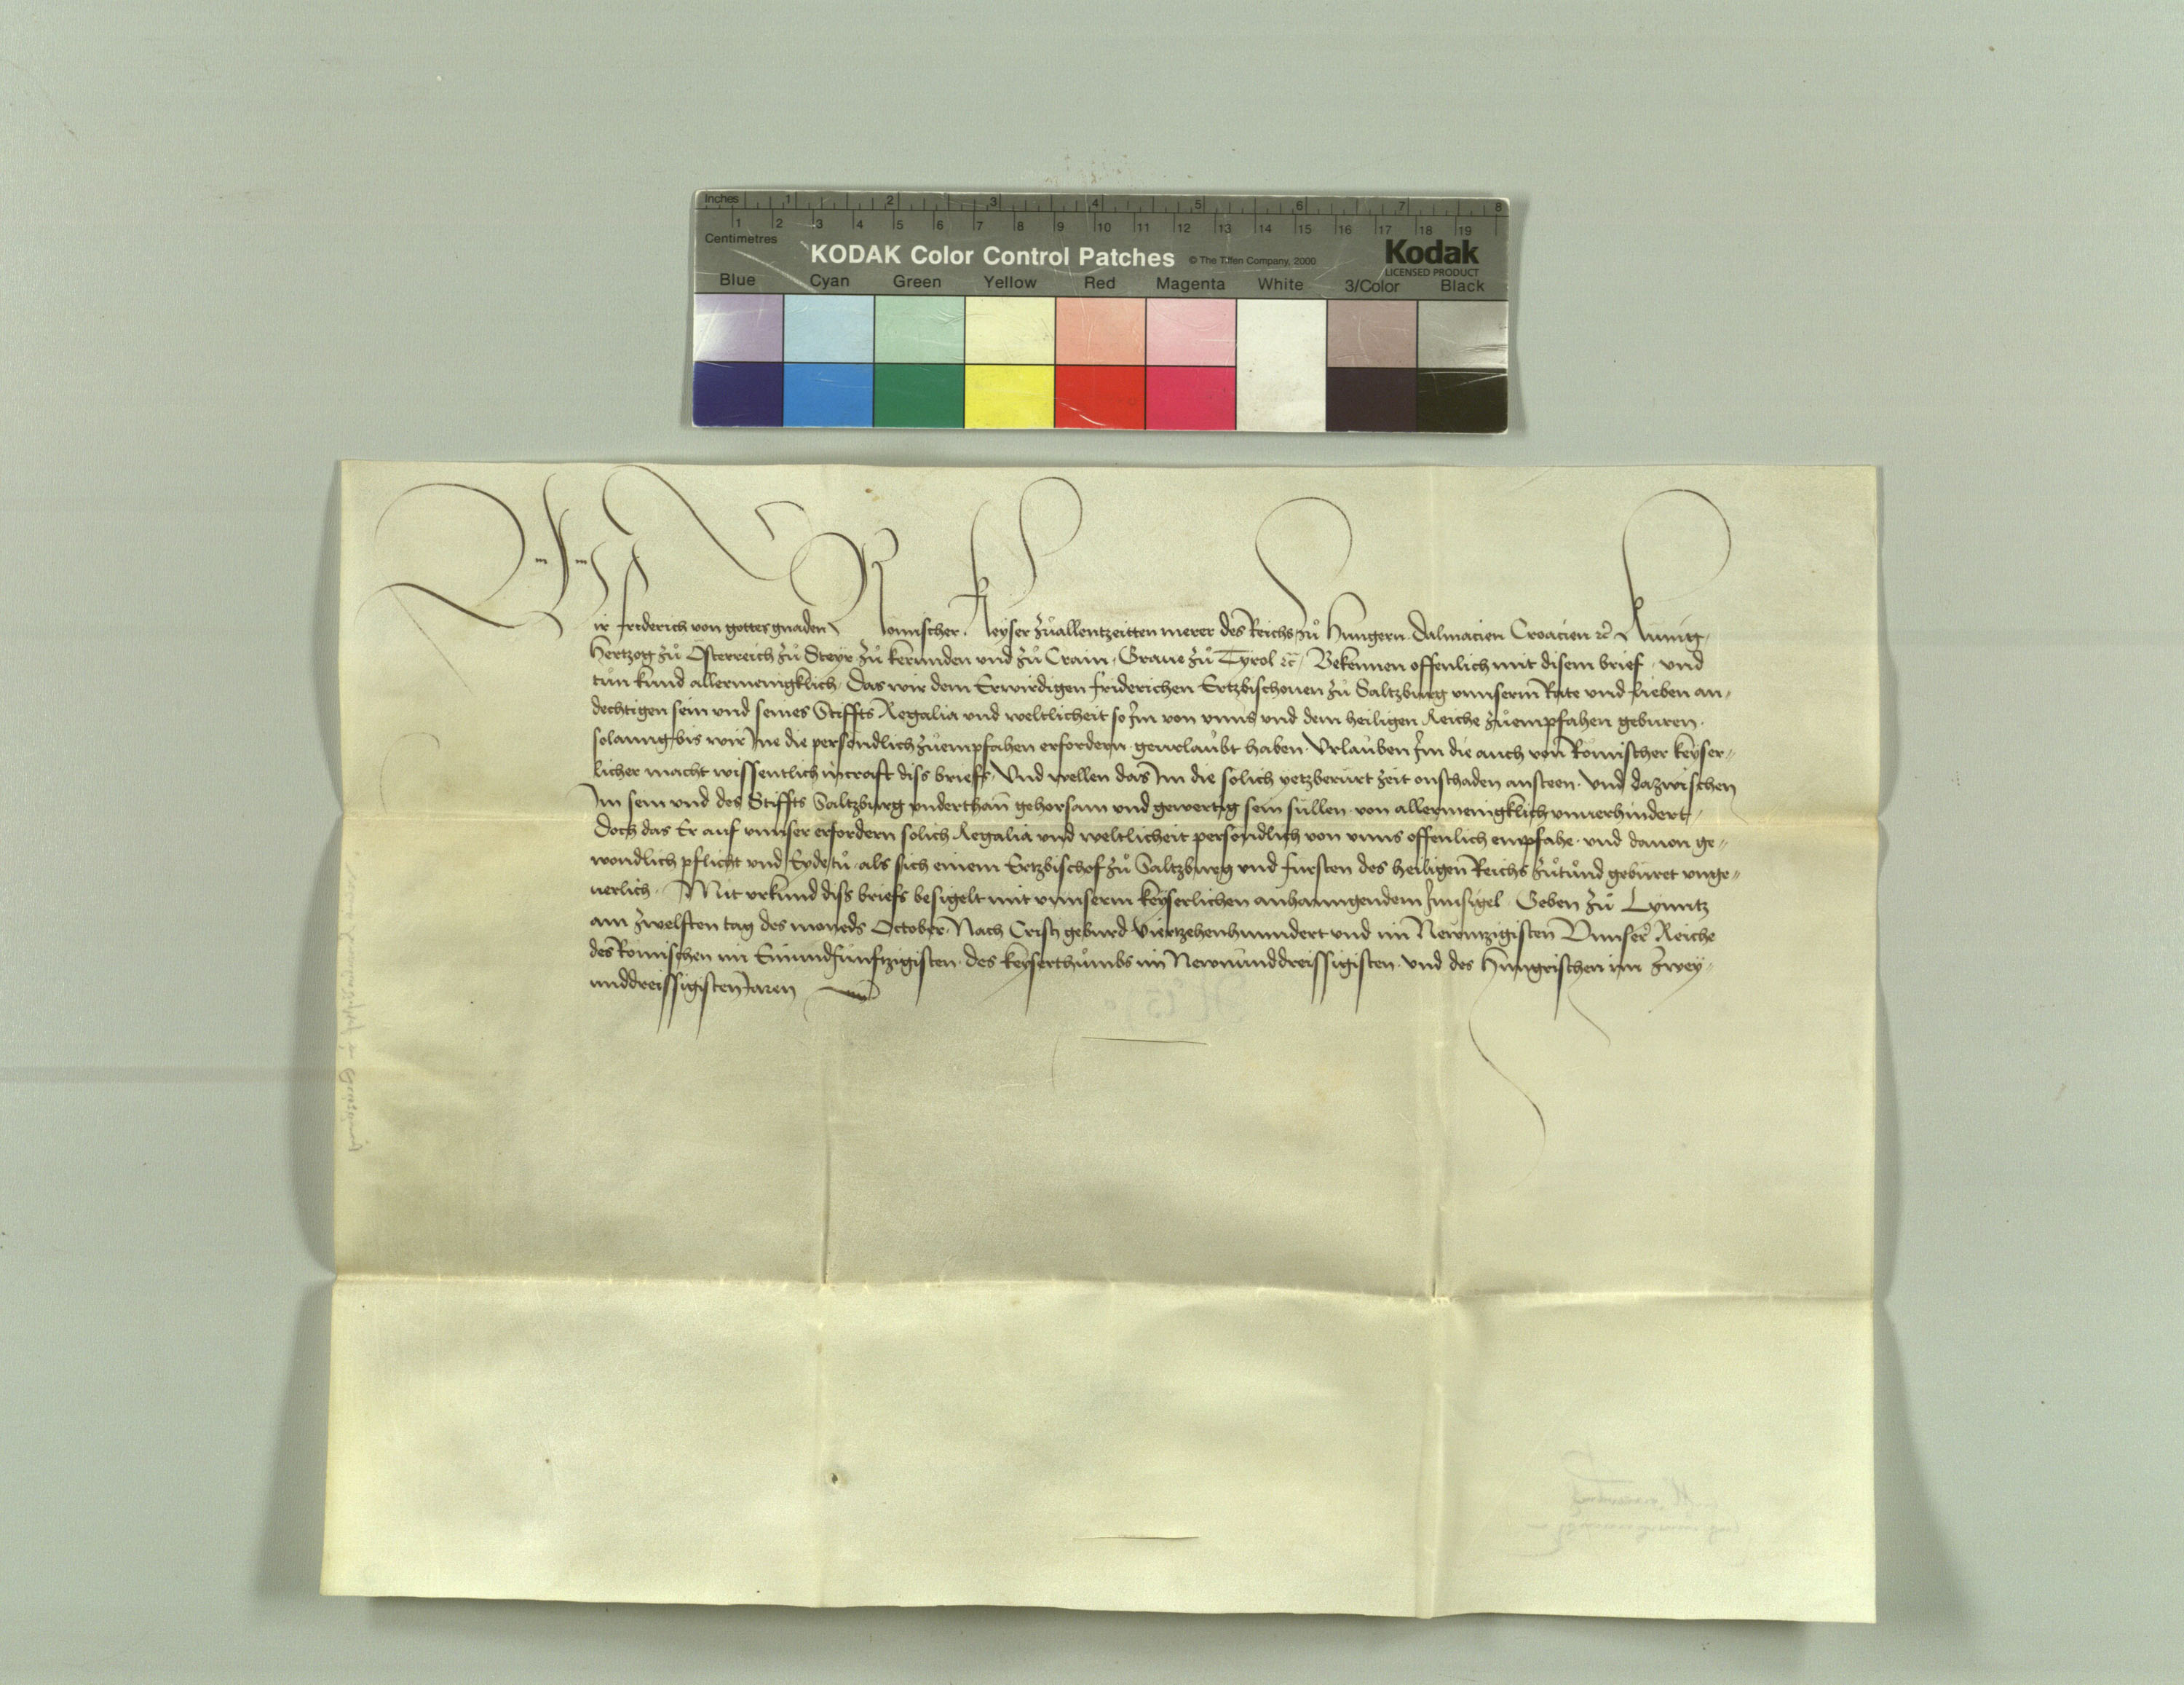 Inches 1 2 3 4 5 6 7 8
1 2 3 4 5 6 7 8 9 10 11 12 13 14 15 16 17 18 19
Centimetres
KODAK Color Control Patches © The Tiffen Company, 2000 Kodak
LICENSED PRODUCT
Blue Cyan Green Yellow Red Magenta White 3/Color Black
Wir Friderich von gottes gnaden Romischer Keyser zůallentzeitten merer des Reichs zů Hungern Dalmacien Croacien ꝛc Kunig
Hertzog zů Österreich zů Steyr zů kernnden und zů Crain, Graue zů Tyrol ꝛc, Bekennen offenlich mit disem brief, und
tůn kund allermenigklich, Das wir dem Erwirdigen friderichen Ertzbischouen zů Saltzburg unnserm Rate und lieben an-
dechtigen sein und seines Stiffts Regalia und weltlicheit so Im von unns und dem heiligen Reiche zůempfahen geburen.
solanng bis wir Ine die persondlich zůempfahen erfordern geurlaubt haben. Urlauben Im die auch von Romischer keyser-
licher macht wissentlich in craft diss briefs, Und wellen das Im die solich yetzberurt zeit onschaden ansteen. und dazwischen
Im sein und des Stiffts Saltzburg underthan gehorsam und gewertig sein sullen. von allermenigklich unuerhindert,
Doch das Er auf unnser erfordern solich Regalia und weltlicheit persondlich von unns offenlich empfahe. und dauon ge-
wondlich pflicht und Eyde tů. als sich einem Ertzbischof zů Saltzburg und fursten des heiligen Reichs zůtůnd geburet unge-
uerlich. Mit urkund diss briefs besigelt mit unnserm keyserlichen anhanngendem Innsigel. Geben zů Lynntz
am zwelften tag des moneds October, Nach Cristi geburd Viertzehenhunndert und im Newntzigisten Unnser Reiche
des Romischen im Einundfunftzigisten. des keyserthůmbs im Newnunddreissigisten. und des Hungrischen im Zwey-
unddreissigisten Jaren